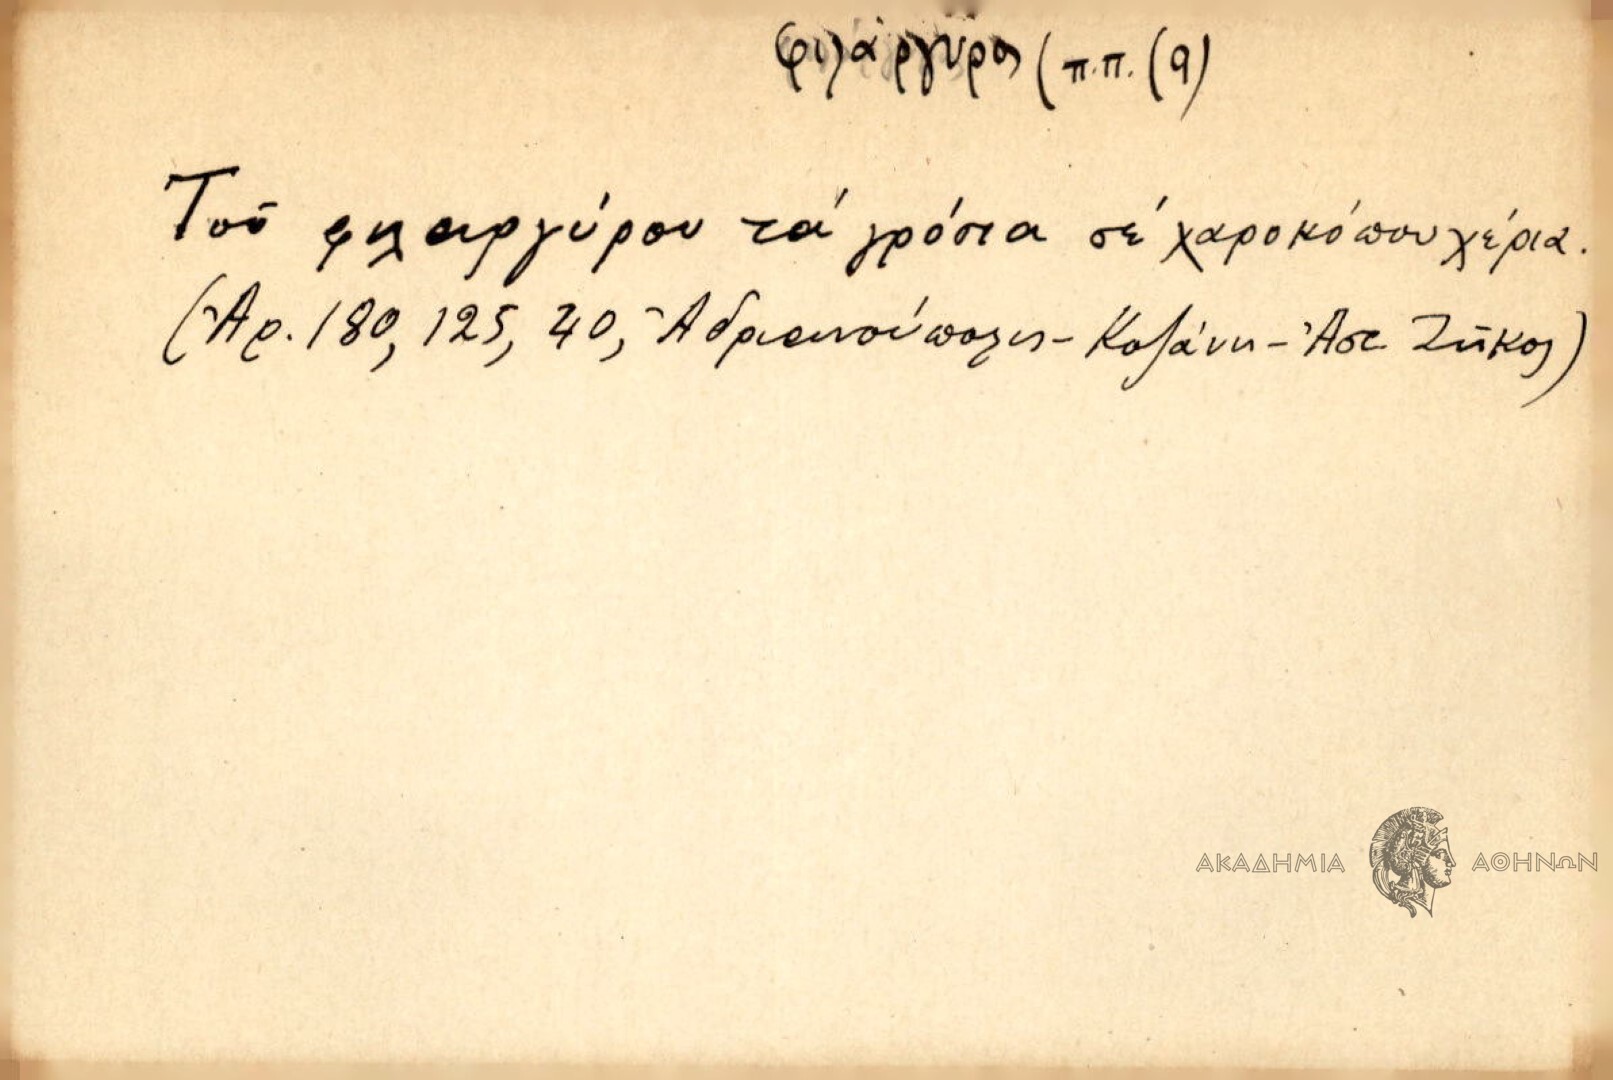 φιλάργυρος (π.π. (9)
Τοῦ φιλαργύρου τά γρόσια σέ χαροκόπου χέρια.
(Ἀρ. 180, 125, 40, Ἀδριανούπολις - Κοζάνη - Ἀστ. Ζῆκος)
ΑΚΑΔΗΜΙΑ ΑΘΗΝΩΝ